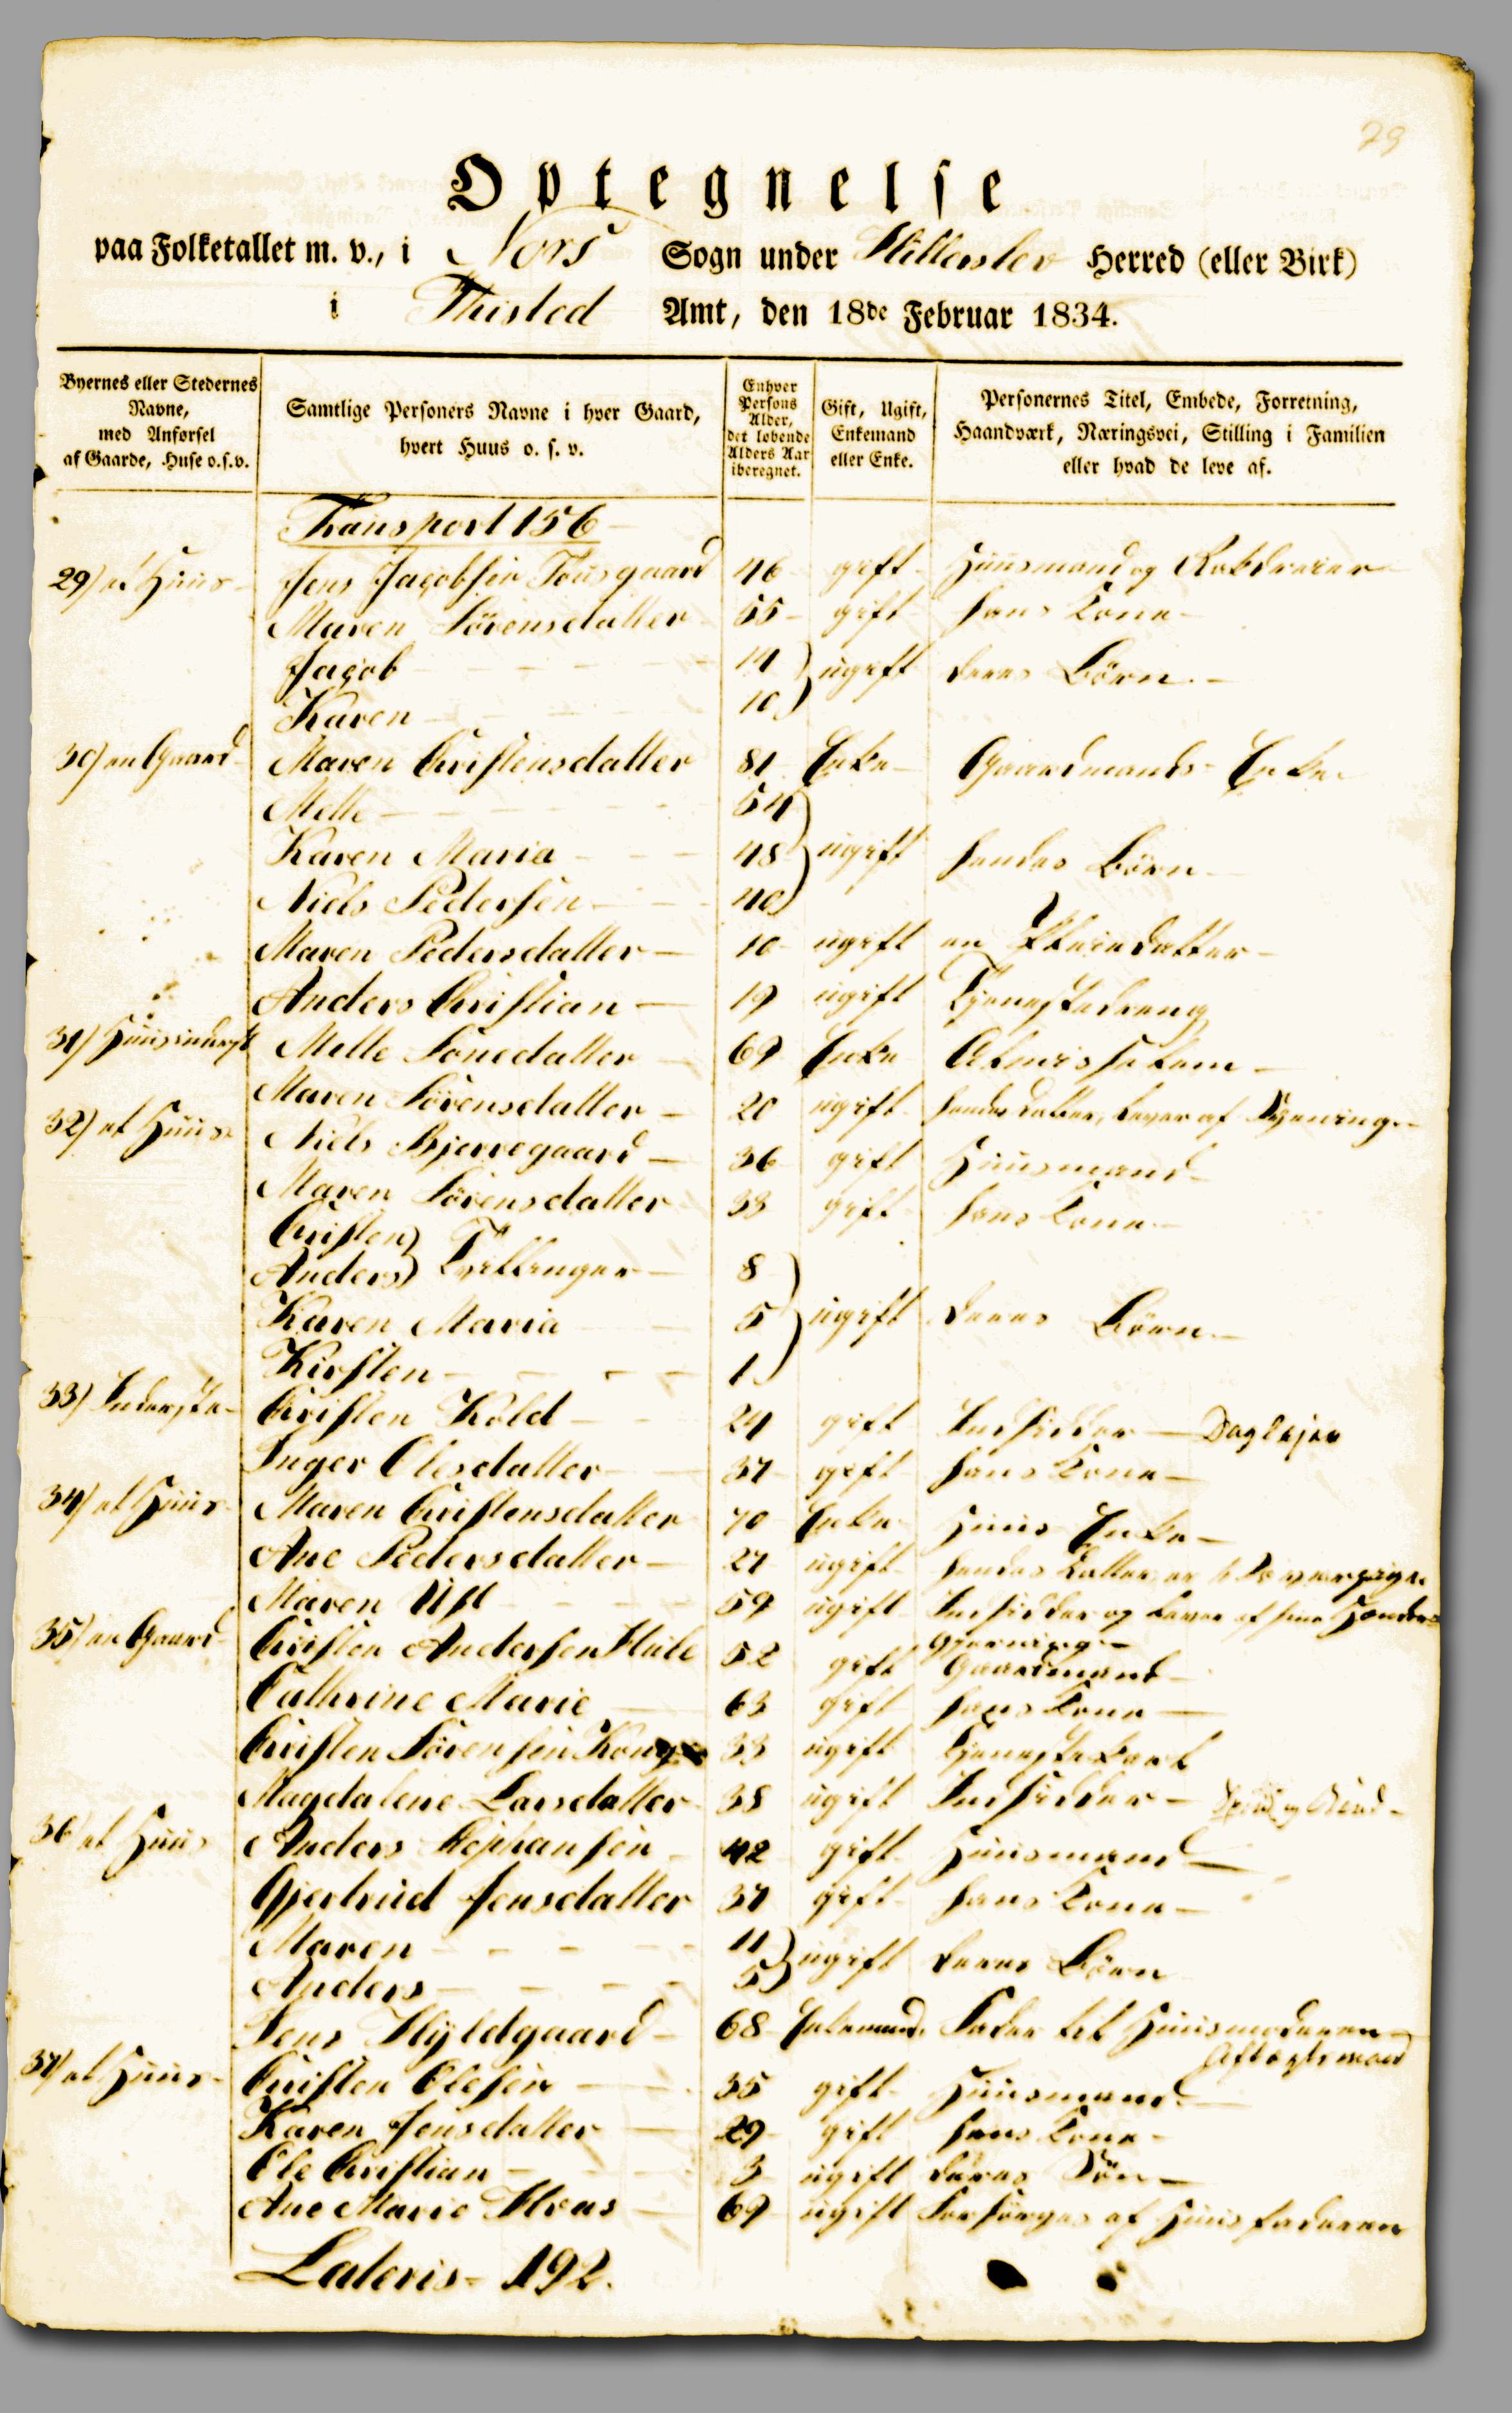 79
Optegnelse
paa Folketallet m. v., i Nors Sogn under Hillerslev Herred (eller Birk)
i Thisted Amt, den 18de Februar 1834.
Byernes eller Stedernes Navne, med Anførsel af Gaarde, Huse o.s.v.
Samtlige Personers Navne i hver Gaard, hvert Huus o. s. v.
Enhver Persons Alder, det løbende Alders Aar iberegnet.
Gift, Ugift, Enkemand eller Enke.
Personernes Titel, Embede, Forretning, Haandværk, Næringsvei, Stilling i Familien eller hvad de leve af.
Transport 156
29) et Huus Jens Jacobsen Tousgaard 46 gift Huusmand og Rokdreier
Maren Sørensdatter 55 gift hans Kone
Jacob 14 ugift deres Børn
Karen 10
30) en Gaard Maren Christensdatter 81 Enke Gaardmands Enke
Mette 54
Karen Maria 48 ugift hendes Børn
Niels Pedersen 40
Maren Pedersdatter 10 ugift en Pleiedatter
Anders Christian 19 ugift Tjenestedreng
31) Mette Sonedatter 69 Enke Almisselem
Maren Sørensdatter 20 ugift hendes Datter, lever af Spinning
32) et Huus Niels Bjerregaard 36 gift Huusmand
Maren Sørensdatter 33 gift hans Kone
Christen
Anders Tvillinger 8
Karen Maria 5 ugift deres Børn
Kirsten 1
33) Inderste Christen Kold 24 gift Indsidder Daglejer
Inger Olesdatter 37 gift hans Kone
34) et Huus Maren Christensdatter 70 Enke Huus Enke
Ane Pedersdatter 27 ugift hendes Datter, er
Maren Uft 59 ugift Indsidder og lever af sine Hænders
Gjerning
35) en Gaard Christen Andersen Hule 52 gift Gaardmand
Cathrine Marie 63 gift hans Kone
Christen Sørensen Kong 33 ugift Tjenestekarl
Magdalene Larsdatter 38 ugift Indsidder
36) et Huus Anders Stephansen 42 gift Huusmand
Gjertrud Jensdatter 37 gift hans Kone
Maren 11 ugift deres Børn
Anders 5
Jens Hyldgaard 68 Enkemand Fader til Huusmoderen
Aftægtsmand
37) et Huus Christen Olesen 35 gift Huusmand
Karen Jensdatter 29 gift hans Kone
Ole Christian 3 ugift deres Søn
Ane Marie Hvas 69 ugift Forsørges af Huusfaderen
Lateris 192.